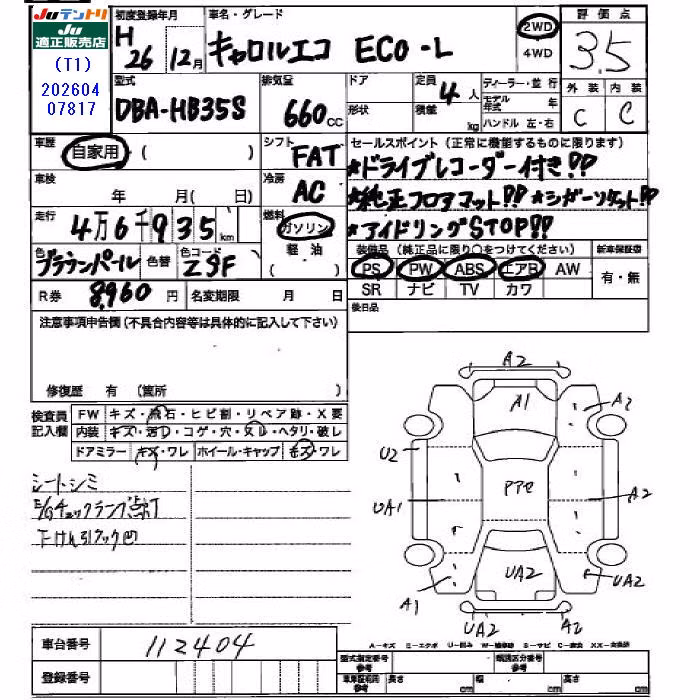 Juテントリ
Ju
適正販売店
(T1)
202604
07817
初度登録年月
H 26 年 12 月
車名・グレード
キャロルエコ ECO-L
2WD
4WD
評価点
3.5
外装 内装
C C
型式
DBA-HB35S
排気量
660 CC
ドア
形状
定員
4 人
積載
kg
ディーラー・並行
モデル年式 年
ハンドル 左・右
車歴
自家用 ( )
シフト
FAT
セールスポイント (正常に機能するものに限ります)
★ドライブレコーダー付き!!
★純正フロアマット!! ★シガーソケット!!
★アイドリングSTOP!!
車検
年 月( 日)
冷房
AC
走行
4万6千935 km
燃料
ガソリン
軽油
( )
色
ブラウンパール
色替
色コード
ZSF
装備品 (純正品に限り○をつけてください)
新車保証書
PS PW ABS エアB AW
SR ナビ TV カワ
有・無
R券 8,960 円
名変期限 月 日
後日品
注意事項申告欄 (不具合内容等は具体的に記入して下さい)
修復歴 有 (箇所
検査員記入欄
FW キズ・飛石・ヒビ割・リペア跡・X要
内装 キズ・汚レ・コゲ・穴・ヌレ・ヘタリ・破レ
ドアミラー キズ・ワレ ホイール・キャップ キズ・ワレ
シートシミ
E/Gチェックランプ点灯
下けん引フック凹
A2
A1
A2
U2
UA1
A2
UA2
A1
UA2
UA2
車台番号
112404
登録番号
A-キズ E-エクボ U-凹み W-補修跡 S-サビ C-腐食 XX-交換済
型式指定番号
参考
類別区分番号
参考
車車証有用
参考
長さ cm 幅 cm 高さ cm